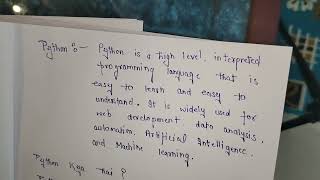 Python :- Python is a high level, interpreted
programming language that is
easy to learn and easy to
understand. It is widely used for
web development, data analysis,
automation, Artificial Intelligence,
and Machine learning.
Python Kya hai ?